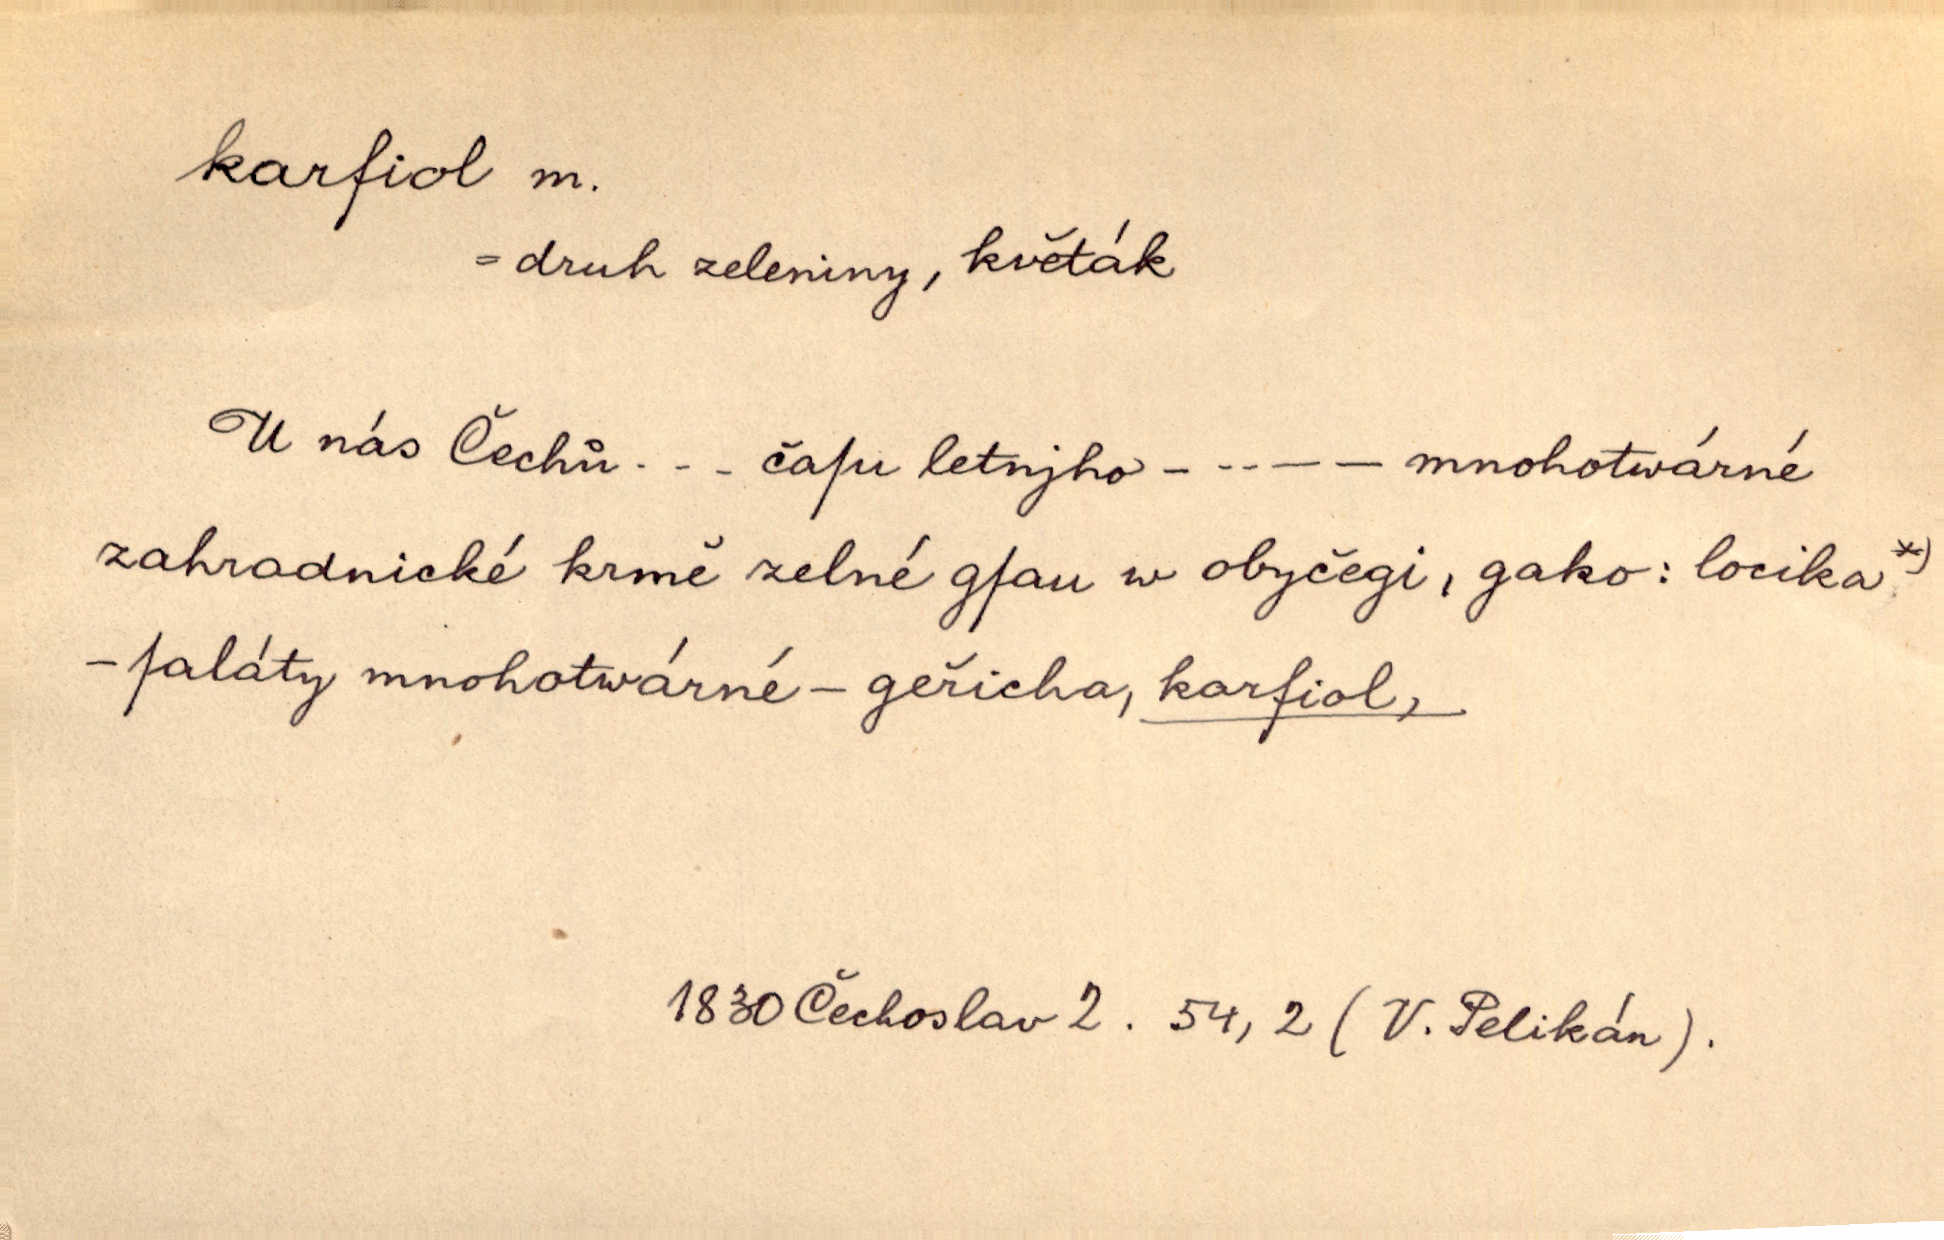 karfiol m.
= druh zeleniny, květák
U nás Čechů . - - čaſu letnjho - - - — — mnohotwárné
zahradnické krmě zelné gſau w obyčegi, gako: locika *)
- ſaláty mnohotwárné - geřicha, karfiol,
1830 Čechoslav 2. 54, 2 (V. Pelikán).